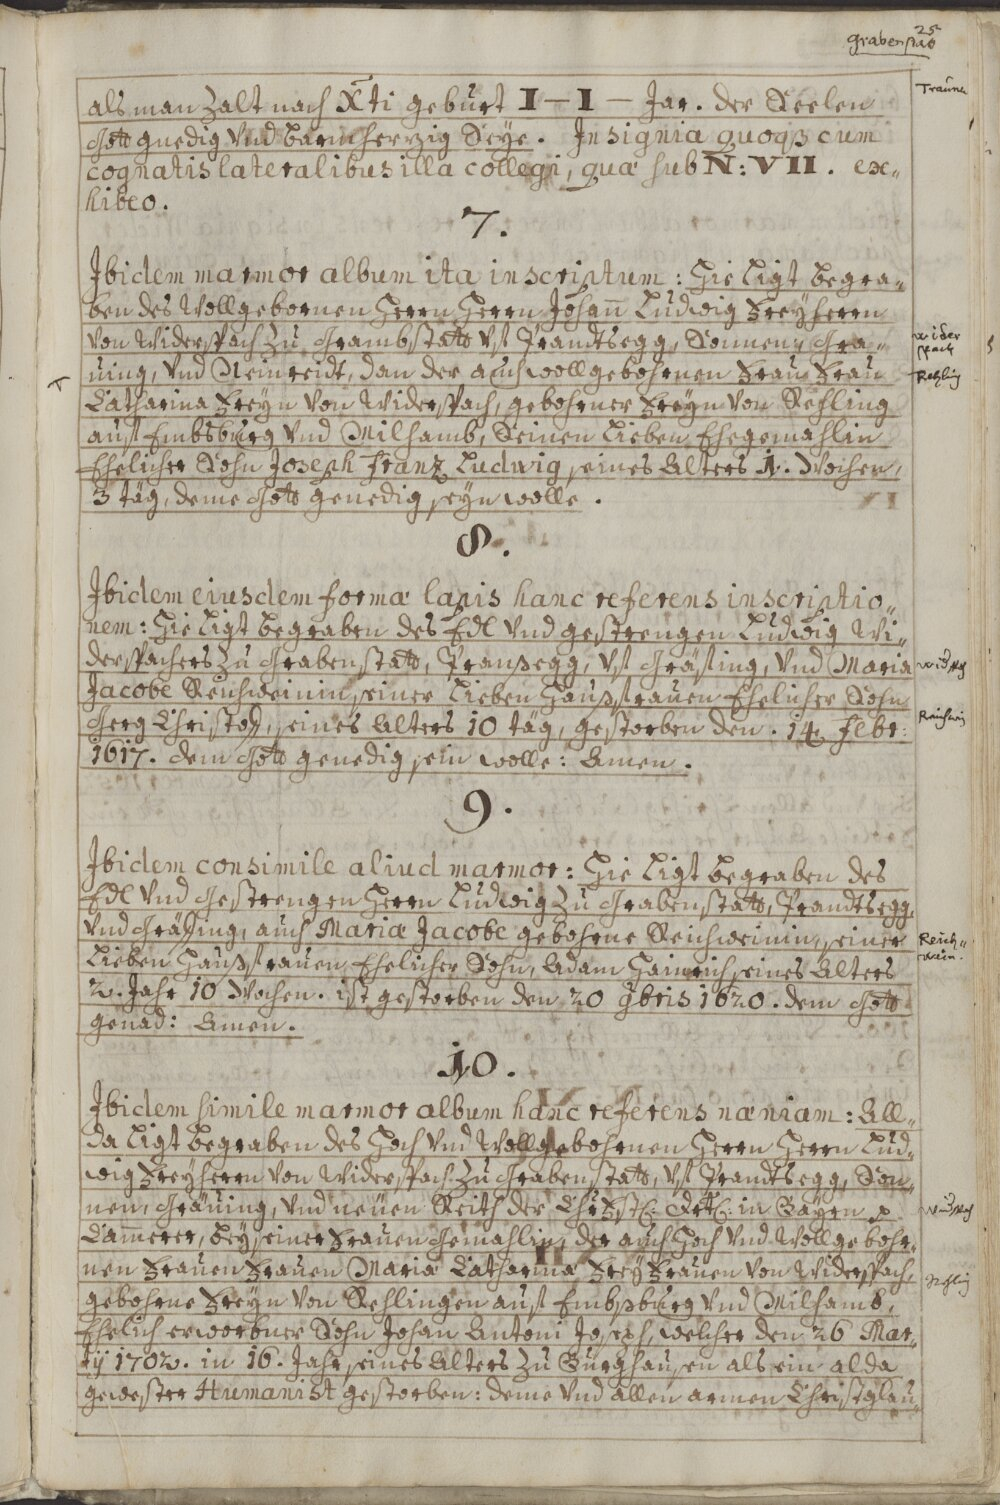 25
grabenstatt
als man zalt nach Xti geburt I – I – Jar. der Seelen
Gott gnedig vnd barmherzig Seye. Insignia quoqȝ cum
cognatis lateralibus illa collegi, quæ sub N: VII. ex„
hibeo.
7.
Ibidem marmor album ita inscriptum: Hie Ligt begra„
ben des Wollgebornen Herrn Herrn Johañ Ludwig Freyherrn
von Widerspach zu Grambstatt vf Prandtsegg, Sonnen, Gra„
uing, vnd Neinreidt, dan der auch wollgebohrnen Frau Frau
Catharina Freyn von Widerspach, gebohrner Freyn von Rehling
auf Embsburg vnd Milhamb, Seinen Lieben Ehegemahlin
Ehelicher Sohn Joseph Franz Ludwig seines Alters 1. Wochen,
3 täg, deme Gott genedig seyn wolle.
8.
Ibidem eiusdem formæ lapis hanc referens inscriptio„
nem: Hie Ligt begraben des Edl vnd gestrengen Ludwig Wi„
derspachers zu Grabenstatt, Pranßegg, vf Gräfing, vnd Maria
Jacobe Reichweinin, seiner Lieben Haußfrauen Ehelicher Sohn
Gerg Christoff, seines Alters 10 täg, gestorben den. 14. febr:
1617. dem Gott genedig sein wolle: Amen.
9.
Ibidem consimile aliud marmor: Hie Ligt begraben des
Edl vnd Gestrengen Herrn Ludwig zu Grabenstatt, Prandtsegg,
vnd Gräffing, auch Mariæ Jacobe gebohrne Reichweinin, seiner
Lieben Haußfrauen Ehelicher Sohn, Adam Hainrich seines Alters
2. Jahr 10 Wochen. ist gestorben den 20 9bris 1620. dem Gott
genad: Amen.
10.
Ibidem simile marmor album hanc referens næniam: All„
da Ligt begraben des Hoch vnd Wollgebohrnen Herrn Herrn Lud„
wig Freyherrn von Widerspach zu Grabenstatt, vf Prandtsegg, Son„
nen, Gräuing, vnd neuen Reith der in Bayrn
Cam̄erer, bey seiner Frauen Gemahlin, der auch Hoch vnd Wollgebohr„
nen Frauen Frauen Maria Catharina Frey Frauen von Widerspach,
gebohrne Freyn von Rehlingen auf Embsburg vnd Milhamb,
Ehelich erworbner Sohn Johan Antoni Joseph, welcher den 26 Mar„
tij 1702. in 16. Jahr seines Alters zu Burghausen als ein alda
gewester Humanist gestorben: deme vnd allen armen Christglau„
Trauner
wider
spach
Rehling
widspach
Reichwein
Reich„
wein.
widspach
rehling